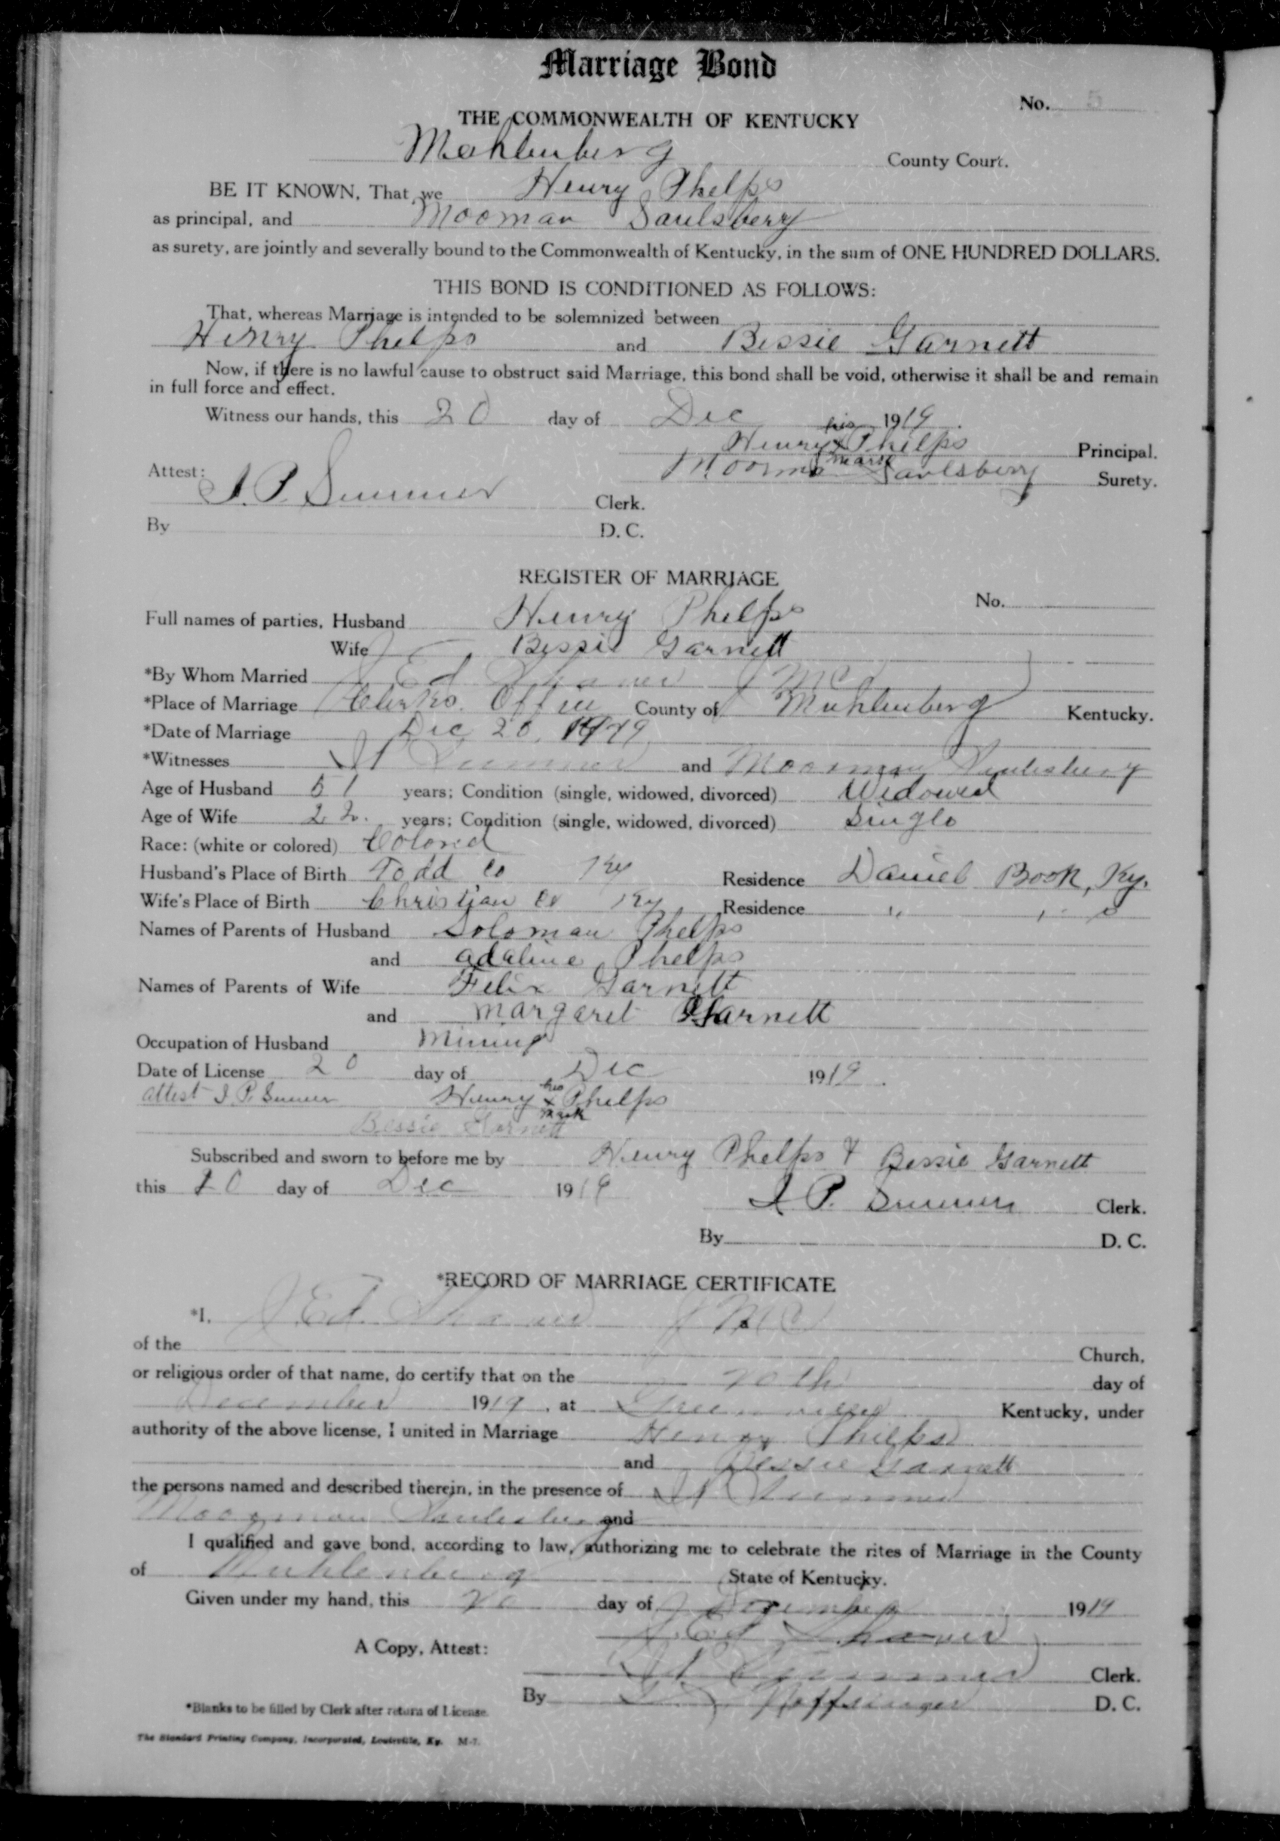 Marriage Bond
No. 5
THE COMMONWEALTH OF KENTUCKY
Muhlenberg County Court.
BE IT KNOWN, That we Henry Phelps
as principal, and Mooman Saulsberry
as surety, are jointly and severally bound to the Commonwealth of Kentucky, in the sum of ONE HUNDRED DOLLARS.
THIS BOND IS CONDITIONED AS FOLLOWS:
That, whereas Marriage is intended to be solemnized between
Henry Phelps and Bessie Garnett
Now, if there is no lawful cause to obstruct said Marriage, this bond shall be void, otherwise it shall be and remain
in full force and effect.
Witness our hands, this 20 day of Dec 1919.
Henry his x mark Phelps Principal.
Attest: Saulsberry Surety.
J. P. Summer Clerk.
By D. C.
REGISTER OF MARRIAGE
No.
Full names of parties, Husband Henry Phelps
Wife Bessie Garnett
*By Whom Married J Ed Shaver JMCJ
*Place of Marriage Clerks Office County of Muhlenberg Kentucky.
*Date of Marriage Dec 20, 1919
*Witnesses Summer and Moorman Saulsberry
Age of Husband 51 years; Condition (single, widowed, divorced) Widowed
Age of Wife 22. years; Condition (single, widowed, divorced) Single
Race: (white or colored) Colored
Husband's Place of Birth Todd Co Ky Residence Daniel Boon, Ky.
Wife's Place of Birth Christian Co Ky Residence " "
Names of Parents of Husband Soloman Phelps
and adaline Phelps
Names of Parents of Wife Felix Garnett
and Margaret Garnett
Occupation of Husband Mining
Date of License 20 day of Dec 1919.
attest J. P. Summer Henry his x mark Phelps
Bessie Garnett
Subscribed and sworn to before me by Henry Phelps & Bessie Garnett
this 20 day of Dec 1919
J. P. Summer Clerk.
By D. C.
*RECORD OF MARRIAGE CERTIFICATE
*I, J Ed. Shaver JMCJ
of the Church,
or religious order of that name, do certify that on the 20th day of
December 1919, at Greenville Kentucky, under
authority of the above license, I united in Marriage Henry Phelps
and Bessie Garnett
the persons named and described therein, in the presence of Summer
Moorman Saulsberry and
I qualified and gave bond, according to law, authorizing me to celebrate the rites of Marriage in the County
of Muhlenberg State of Kentucky.
Given under my hand, this 20 day of December 1919
J. Ed Shaver
A Copy, Attest: Summer Clerk.
By Noffsinger D. C.
*Blanks to be filled by Clerk after return of License.
The Standard Printing Company, Incorporated, Louisville, Ky. M-7.